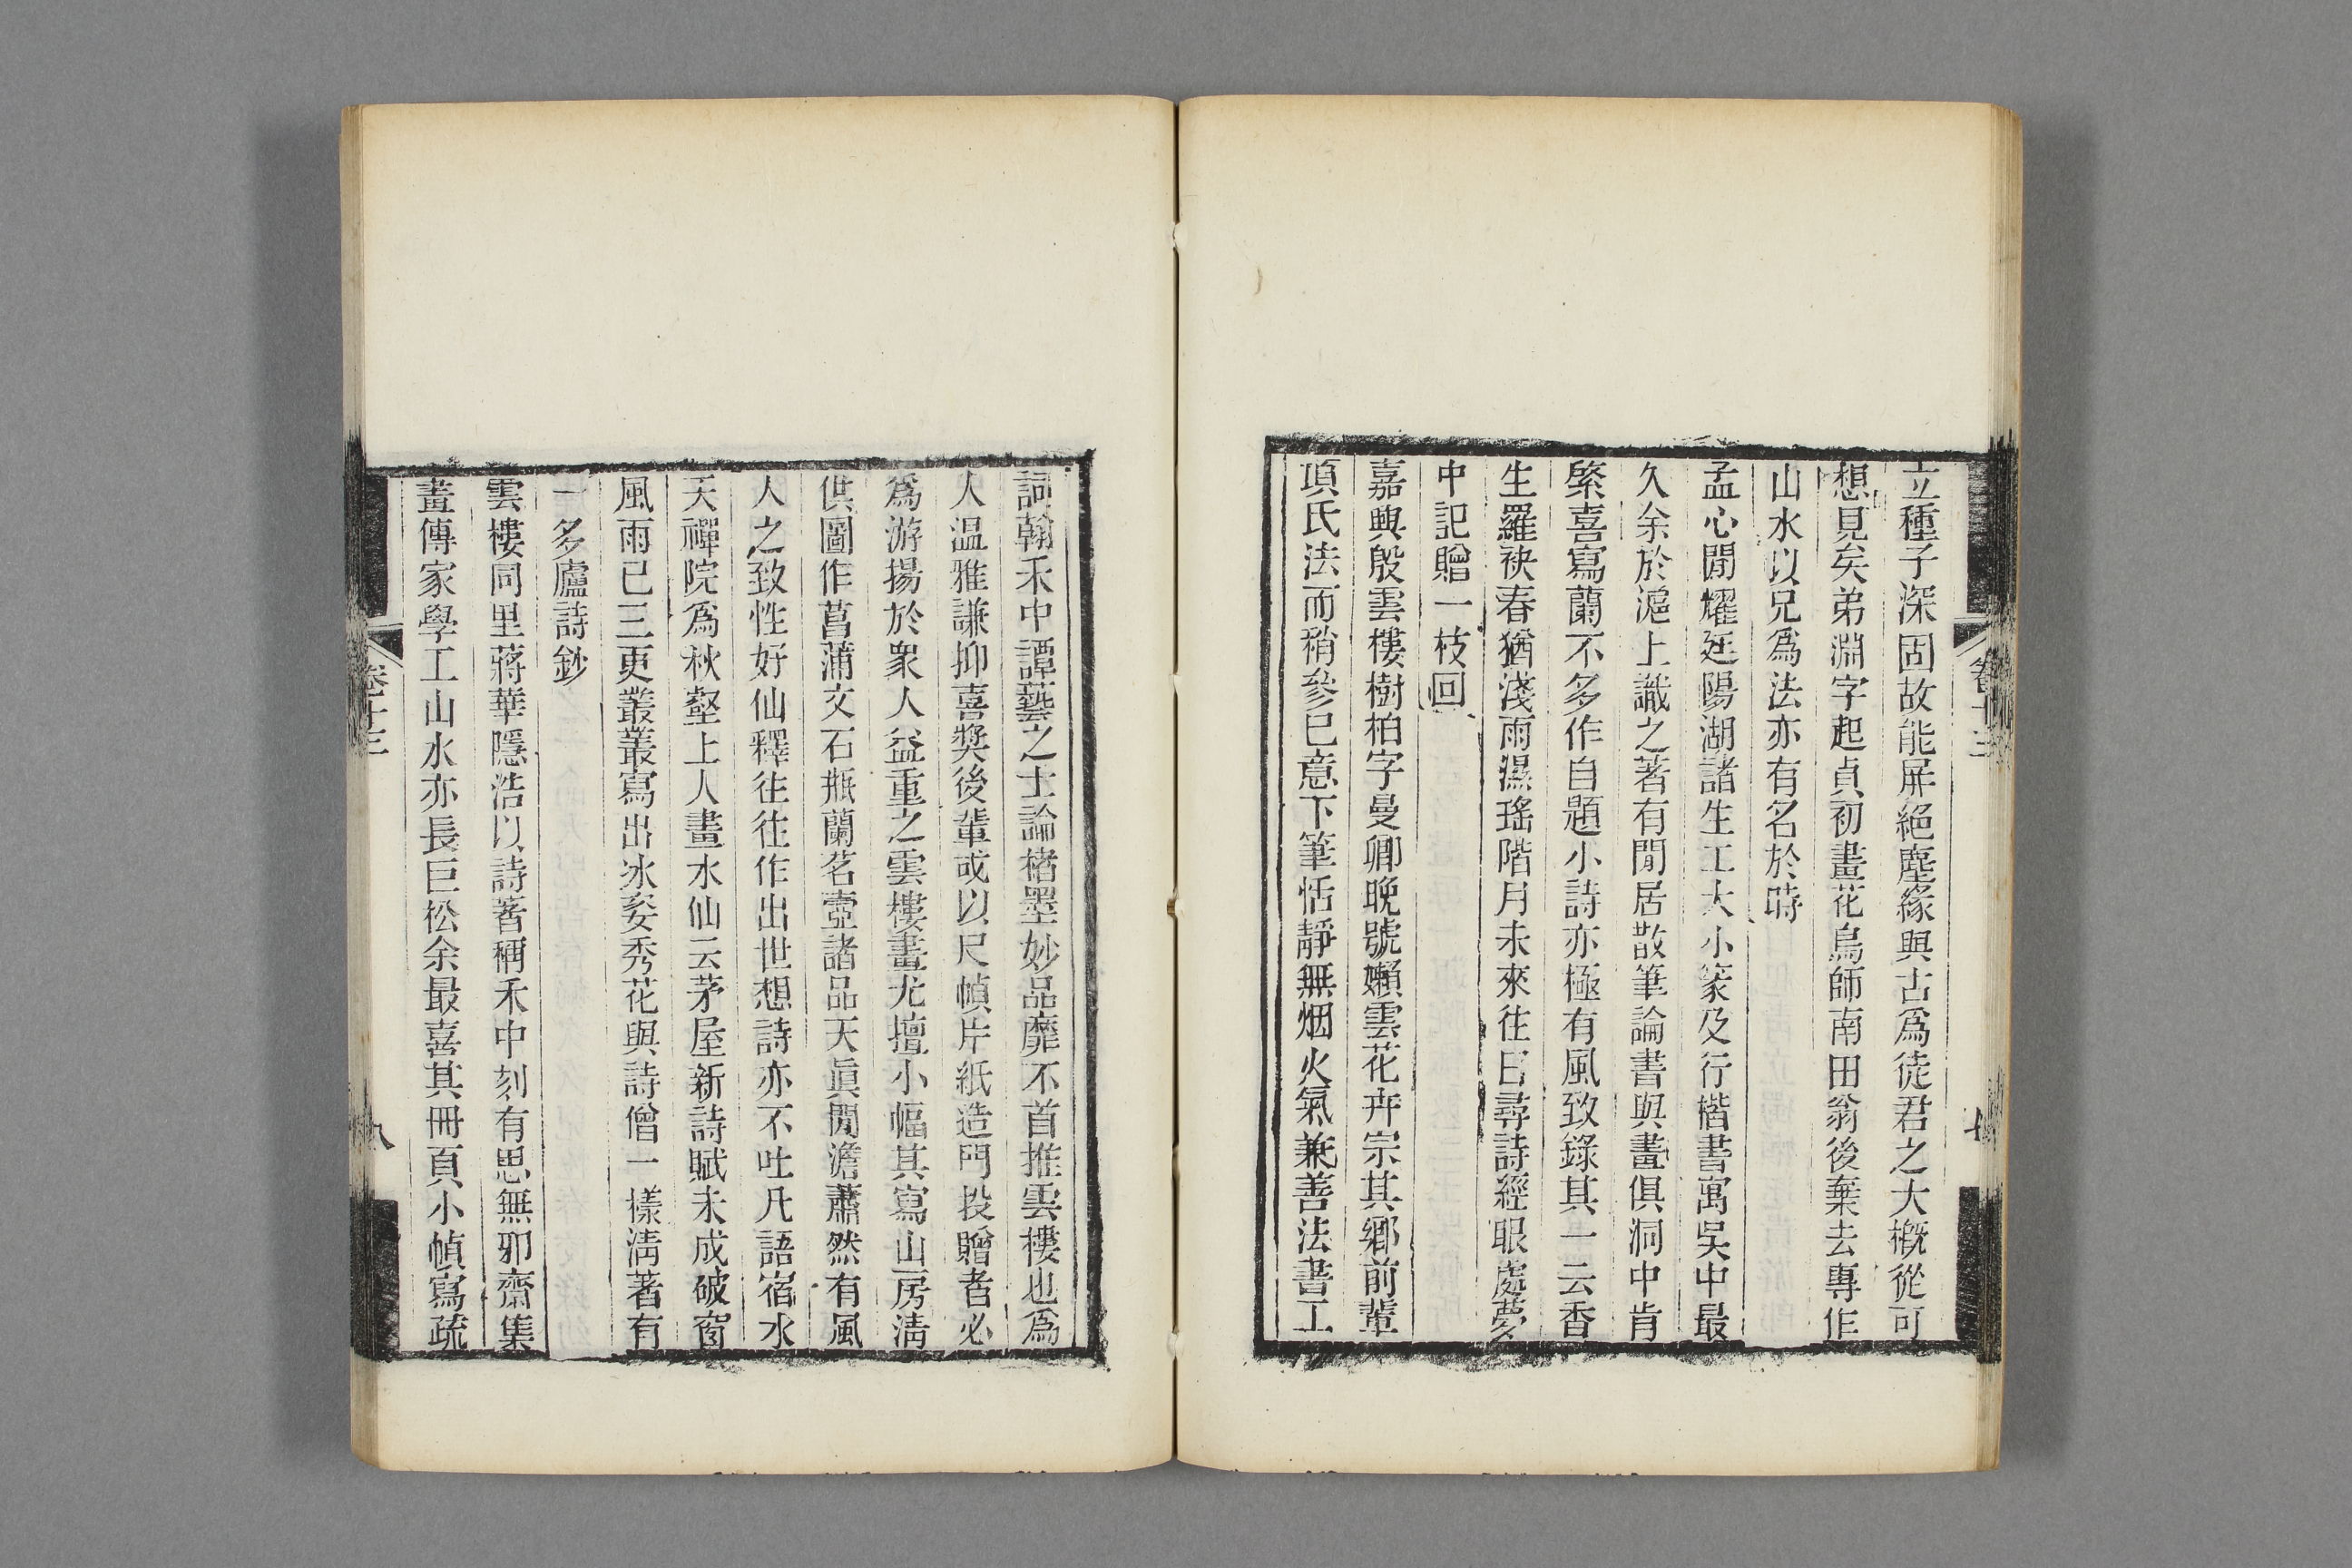 立種子深固故能屏絕塵緣與古爲徒君之大槪從可
想見矣弟淵字起貞初畫花鳥師南田翁後棄去專作
山水以兄爲法亦有名於時
孟心閒燿廷陽湖諸生工大小篆及行楷書寓吳中最
久余於滬上識之著有閒居散筆論書與畫俱洞中肯
綮喜寫蘭不多作自題小詩亦極有風致錄其一云香
生羅袂春猶淺雨濕瑤階月未來往日尋詩經眼處夢
中記贈一枝回
嘉興殷雲樓樹柏字曼卿晚號嬾雲花卉宗其鄉前輩
項氏法而稍參已意下筆恬靜無烟火氣兼善法書工
卷十三
七
詞翰禾中譚藝之士論楮墨妙品靡不首推雲樓也爲
人温雅謙抑喜獎後輩或以尺幀片紙造門投贈者必
爲游揚於衆人益重之雲樓畫尤擅小幅其寫山房淸
供圖作菖蒲文石瓶蘭茗壺諸品天眞閒澹蕭然有風
人之致性好仙釋往往作出世想詩亦不吐凡語宿水
天禪院爲秋壑上人畫水仙云茅屋新詩賦未成破窗
風雨已三更叢叢寫出冰姿秀花與詩僧一樣淸著有
一多廬詩鈔
雲樓同里蔣華隱浩以詩著稱禾中刻有思無邪齋集
畫傳家學工山水亦長巨松余最喜其冊頁小幀寫疏
卷十三
八